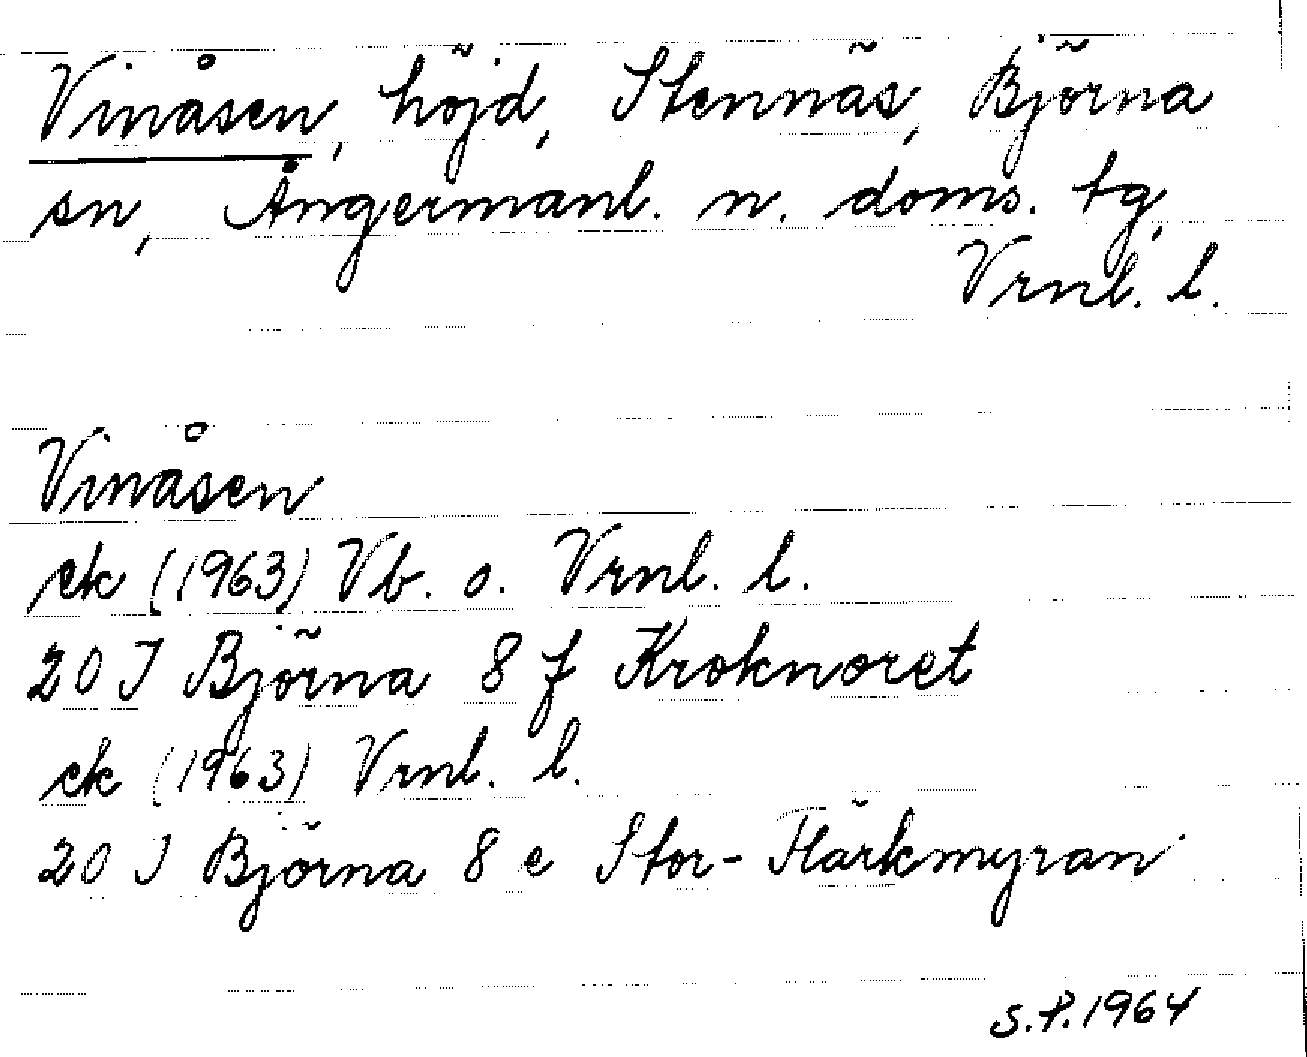 Vinåsen, höjd, Stennäs, Björna
sn, Ångermanl. n. doms. tg,
Vrnl. l.
Vinåsen
ek (1963) Vb. o. Vrnl. l.
20 J Björna 8 f Kroknoret
ek (1963) Vrnl. l.
20 J Björna 8 e Stor-Flärkmyran
S.P. 1964